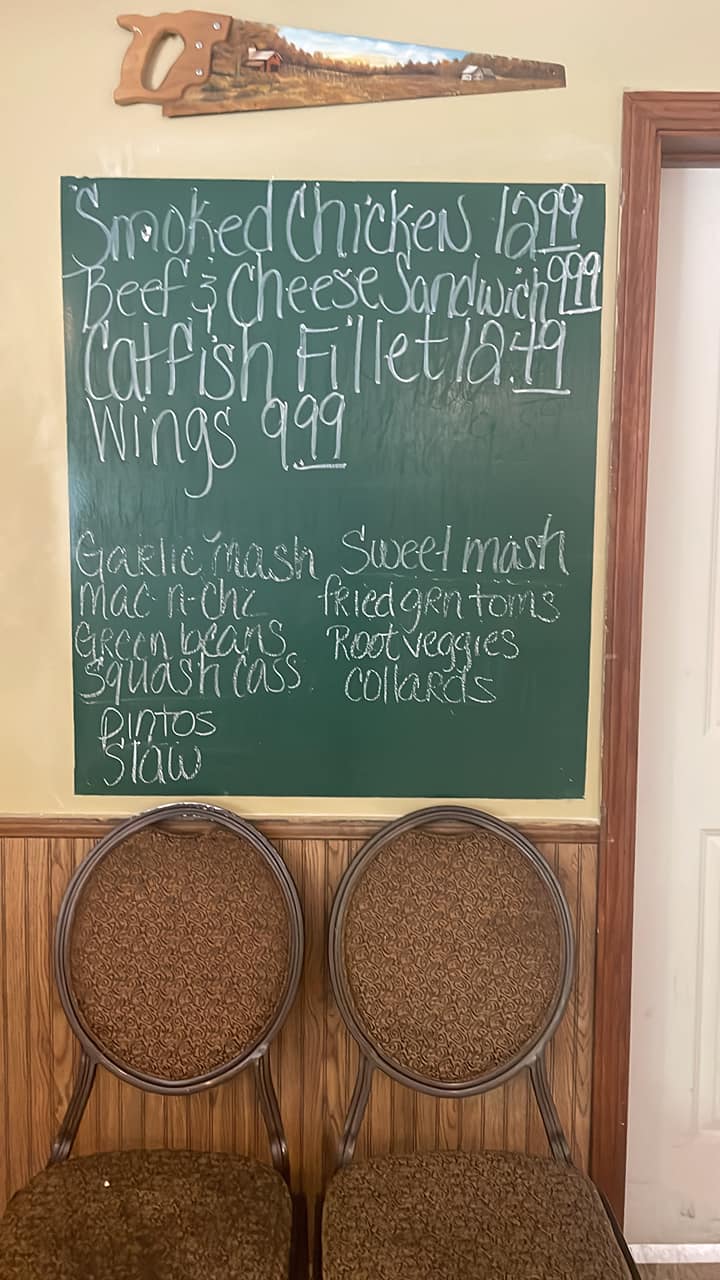 Smoked Chicken 12 99
Beef & Cheese Sandwich 9 99
Catfish Fillet 12.49
Wings 9.99
Garlic mash
mac-n-chz
Green beans
Squash cass
pintos
Slaw
Sweet mash
fried grn toms
Root veggies
collards